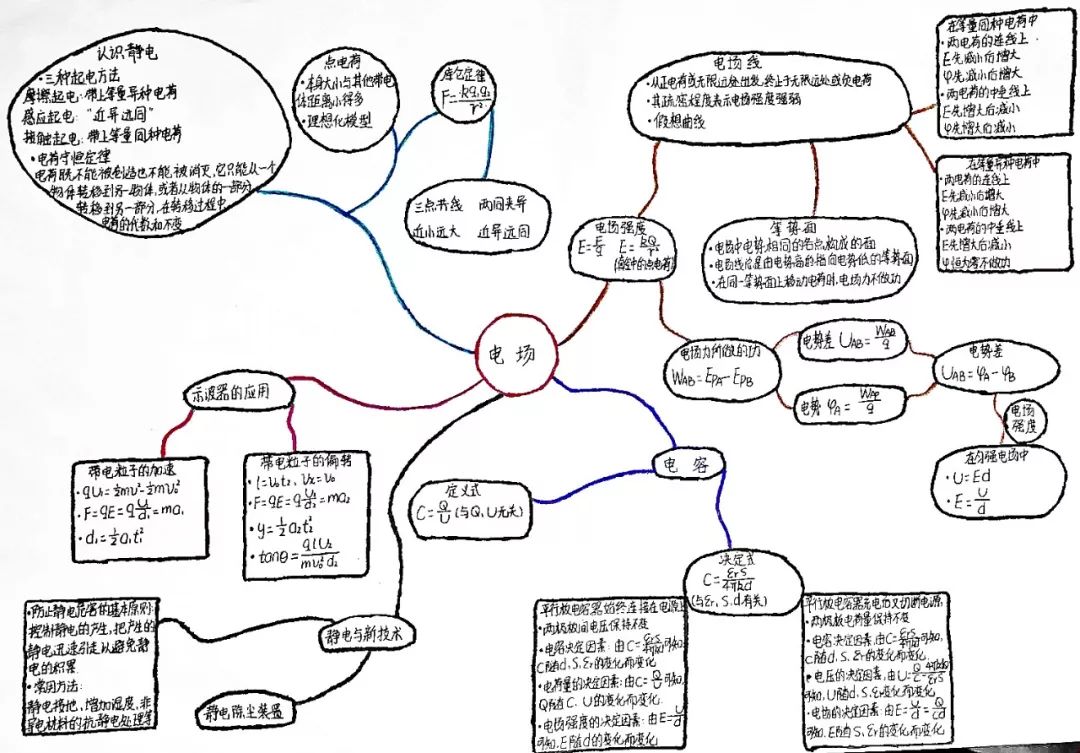 认识静电
·三种起电方法
摩擦起电:带上等量异种电荷
感应起电:“近异远同”
接触起电:带上等量同种电荷
·电荷守恒定律
电荷既不能被创造也不能被消灭,它只能从一个
物体转移到另一物体,或者从物体的一部分
转移到另一部分,在转移过程中
电荷的代数和不变
点电荷
·本身大小与其他带电
体距离小得多
·理想化模型
库仑定律
F=kq₁q₂/r²
三点共线 两同夹异
近小远大 近异远同
电场线
·从正电荷或无限远处出发,终止于无限远处或负电荷
·其疏密程度表示电场强度强弱
·假想曲线
在等量同种电荷中
·两电荷的连线上
E先减小后增大
φ先减小后增大
·两电荷的中垂线上
E先增大后减小
φ先增大后减小
在等量异种电荷中
·两电荷的连线上
E先减小后增大
φ先减小后增大
·两电荷的中垂线上
E先增大后减小
φ恒为零不做功
电场强度
E=F/q E=kQ/r²
(真空中的点电荷)
等势面
·电场中电势相同的各点构成的面
·电场线总是由电势高的指向电势低的等势面
·在同一等势面上移动电荷时,电场力不做功
电场
电场力所做的功
W_AB=E_PA-E_PB
电势差 U_AB=W_AB/q
电势 φ_A=W_AP/q
电势差
U_AB=φ_A-φ_B
电场
强度
在匀强电场中
·U=Ed
·E=U/d
示波器的应用
带电粒子的加速
·qU₁=½mv²-½mv₀²
·F=qE=qU₁/d₁=ma₁
·d₁=½a₁t₁²
带电粒子的偏转
·l=v₀t₂, v₂=v₀
·F=qE=qU₂/d₂=ma₂
·y=½a₂t₂²
·tanθ=qlU₂/mv₀²d₂
电容
定义式
C=Q/U(与Q、U无关)
决定式
C=εrS/4πkd
(与εr、S、d有关)
平行板电容器始终连接在电源上
·两极板间电压保持不变
·电容决定因素:由C=εrS/4πkd可知,
C随d、S、εr的变化而变化
·电荷量的决定因素:由C=Q/U可知,
Q随C、U的变化而变化
·电场强度的决定因素:由E=U/d
可知,E随d的变化而变化
平行板电容器充电后又切断电源
·两极板电荷量保持不变
·电容决定因素:由C=εrS/4πkd可知,
C随d、S、εr的变化而变化
·电压的决定因素,由U=Q/C=4πkdQ/εrS
可知,U随d、S、εr变化而变化
·电场的决定因素:由E=U/d=Q/Cd
可知,E随S、εr的变化而变化
静电与新技术
·防止静电危害的基本原则:
控制静电的产生,把产生的
静电迅速引走以避免静
电的积累
·常用方法:
静电接地,增加湿度,非
导电材料的抗静电处理等
静电除尘装置